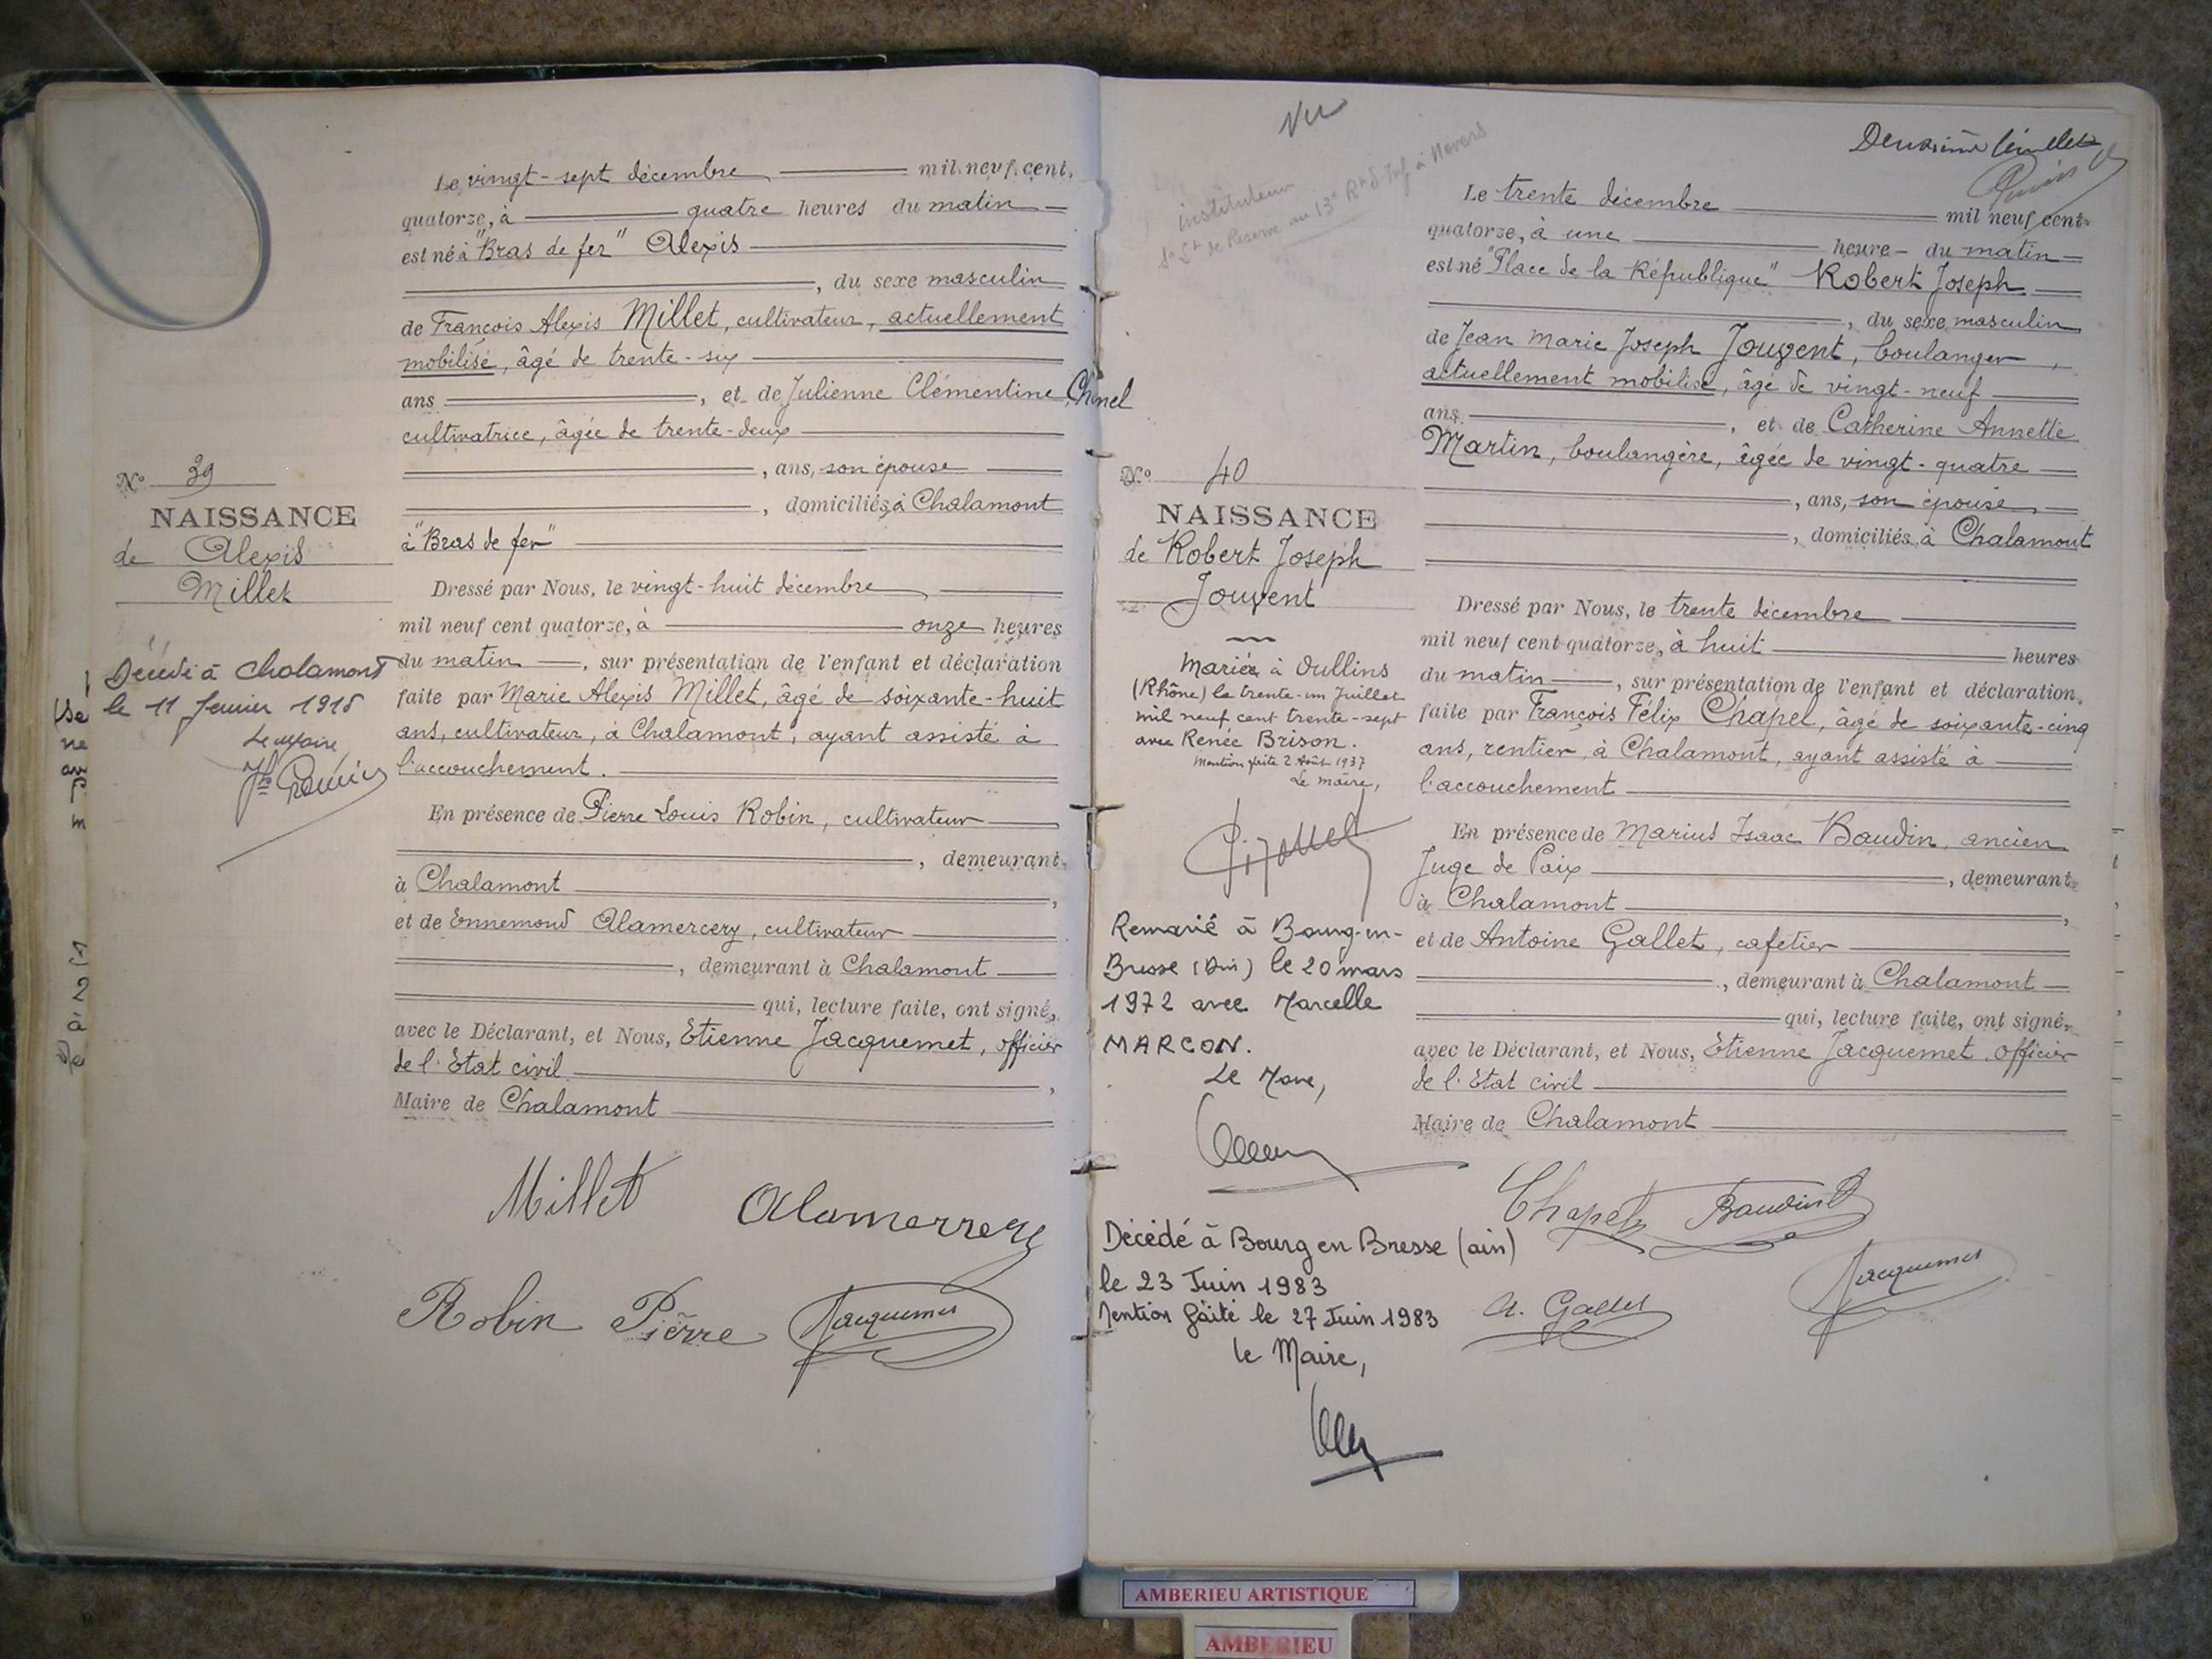 Le vingt-sept décembre mil neuf cent
quatorze, à quatre heures du matin
est né à "Bras de fer" Alexis
, du sexe masculin
de François Alexis Millet, cultivateur, actuellement
mobilisé, âgé de trente-six
ans, et de Julienne Clémentine Chinel
cultivatrice, âgée de trente-deux
, ans, son épouse
, domiciliés à Chalamont
à "Bras de fer"
N° 39
NAISSANCE
de Alexis
Millet
Décédé à Chalamont
le 11 février 1918
Le maire
Dressé par Nous, le vingt-huit décembre,
mil neuf cent quatorze, à onze heures
du matin, sur présentation de l'enfant et déclaration
faite par Marie Alexis Millet, âgé de soixante-huit
ans, cultivateur, à Chalamont, ayant assisté à
l'accouchement.
En présence de Pierre Louis Robin, cultivateur
, demeurant
à Chalamont,
et de Ennemond Alamercery, cultivateur
, demeurant à Chalamont
qui, lecture faite, ont signé,
avec le Déclarant, et Nous, Etienne Jacquemet, officier
de l'Etat civil,
Maire de Chalamont
Millet Alamercery
Robin Pierre Jacquemet
Vu
instituteur
de Réserve au 13e Rt d'Inf à Nevers
Deuxième feuillet
Le trente décembre mil neuf cent
quatorze, à une heure du matin
est né "Place de la République" Robert Joseph
, du sexe masculin
de Jean Marie Joseph Jouvent, boulanger,
actuellement mobilisé, âgé de vingt-neuf
ans, et de Catherine Annette
Martin, boulangère, âgée de vingt-quatre
, ans, son épouse,
, domiciliés à Chalamont
N° 40
NAISSANCE
de Robert Joseph
Jouvent
Mariéa à Oullins
(Rhône) le trente-un Juillet
mil neuf cent trente-sept
avec Renée Brison.
Mention faite 2 Août 1937
Le maire,
Remarié à Bourg-en-
Bresse (Ain) le 20 mars
1972 avec Marcelle
MARCON.
Le Maire,
Décédé à Bourg en Bresse (ain)
le 23 Juin 1983
Mention faite le 27 Juin 1983
le Maire,
Dressé par Nous, le trente décembre
mil neuf cent quatorze, à huit heures
du matin, sur présentation de l'enfant et déclaration
faite par François Félix Chapel, âgé de soixante-cinq
ans, rentier, à Chalamont, ayant assisté à
l'accouchement
En présence de Marius Isaac Baudin, ancien
Juge de Paix, demeurant
à Chalamont,
et de Antoine Gallet, cafetier
, demeurant à Chalamont
qui, lecture faite, ont signé,
avec le Déclarant, et Nous, Etienne Jacquemet, officier
de l'Etat civil
Maire de Chalamont
Chapel Baudin
Jacquemet
A. Gallet
AMBERIEU ARTISTIQUE
AMBERIEU